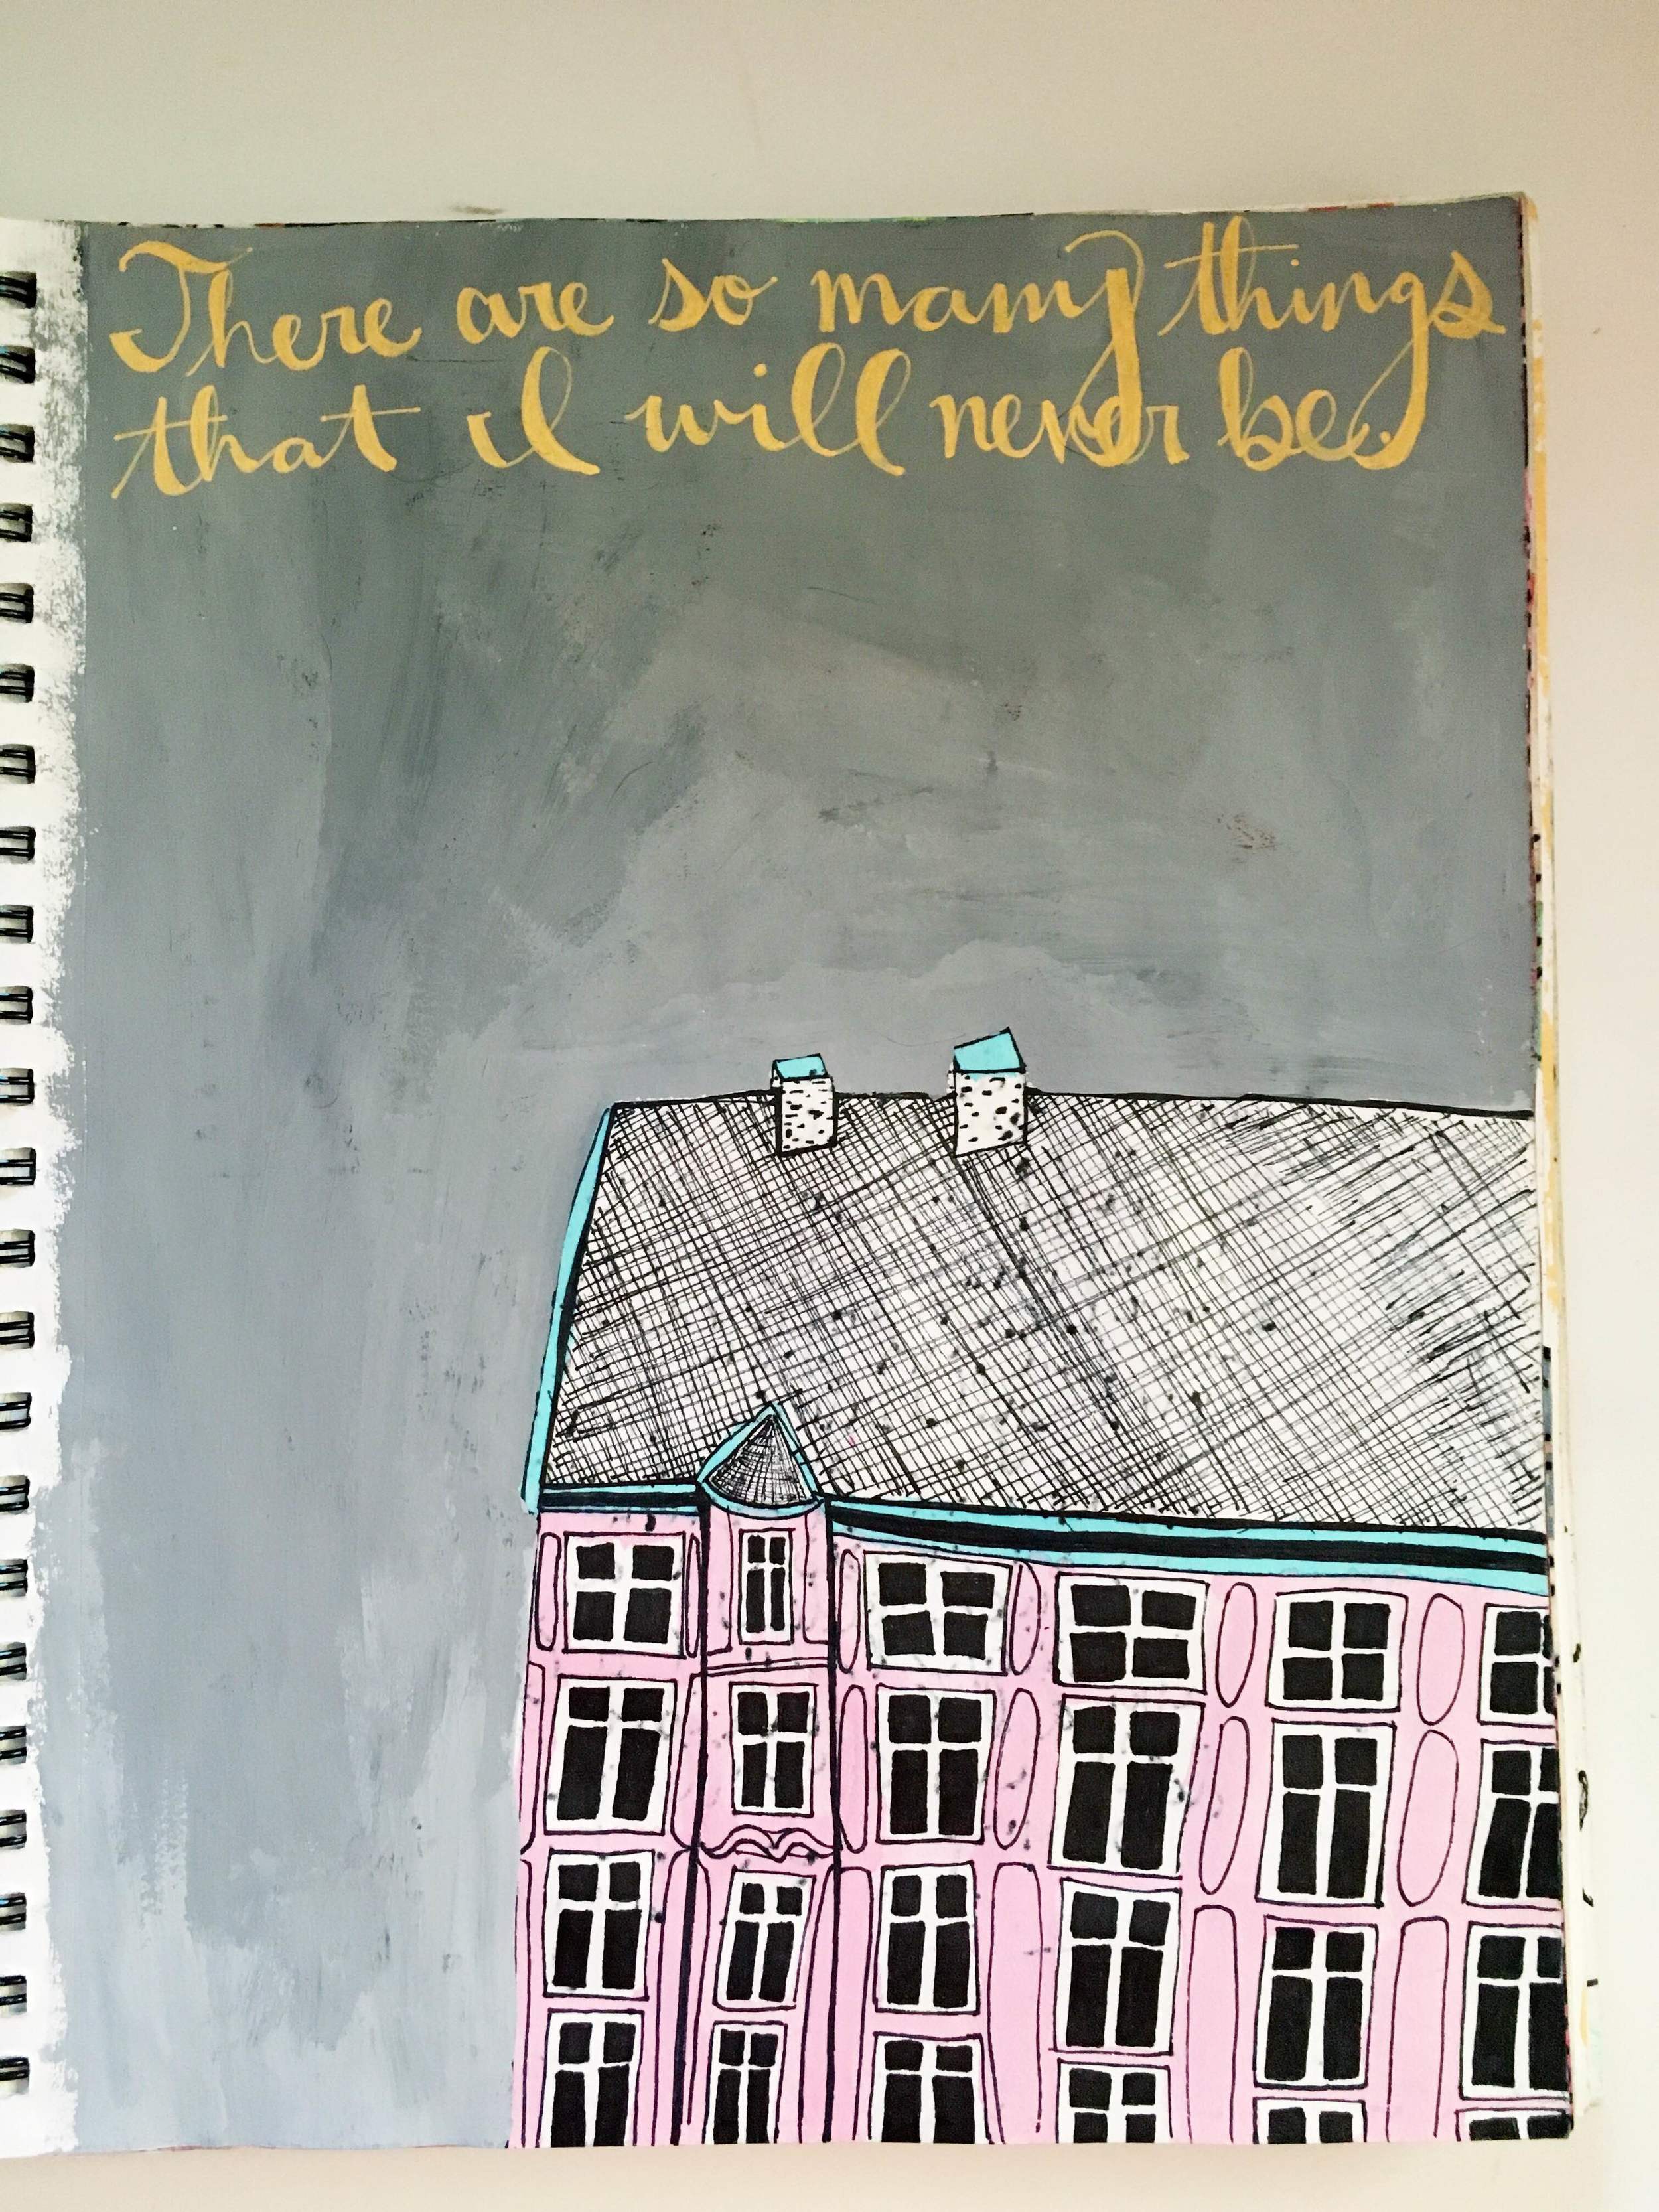 There are so many things
that I will never be.